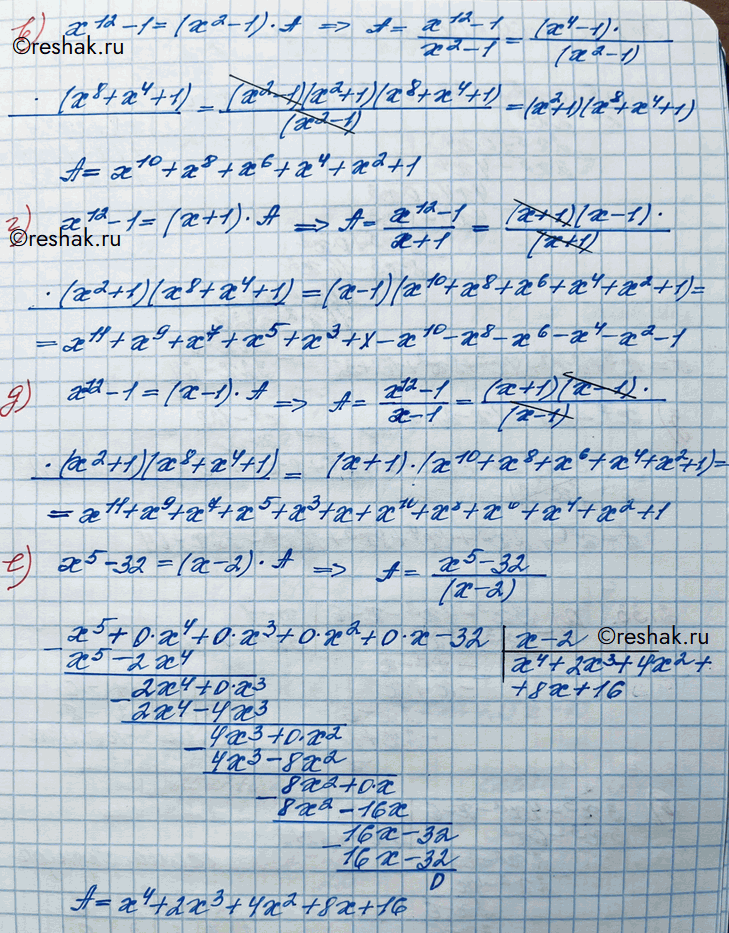 в) x¹² − 1 = (x² − 1) · A ⇒ A = (x¹² − 1)/(x² − 1) = (x⁴ − 1) · / (x² − 1)
©reshak.ru
· (x⁸ + x⁴ + 1) = (x² − 1)(x² + 1)(x⁸ + x⁴ + 1)/(x² − 1) = (x² + 1)(x⁸ + x⁴ + 1)
A = x¹⁰ + x⁸ + x⁶ + x⁴ + x² + 1
г) x¹² − 1 = (x + 1) · A ⇒ A = (x¹² − 1)/(x + 1) = (x + 1)(x − 1) · / (x + 1)
©reshak.ru
· (x² + 1)(x⁸ + x⁴ + 1) = (x − 1)(x¹⁰ + x⁸ + x⁶ + x⁴ + x² + 1) =
= x¹¹ + x⁹ + x⁷ + x⁵ + x³ + x − x¹⁰ − x⁸ − x⁶ − x⁴ − x² − 1
д) x¹² − 1 = (x − 1) · A ⇒ A = (x¹² − 1)/(x − 1) = (x + 1)(x − 1) · / (x − 1)
· (x² + 1)(x⁸ + x⁴ + 1) = (x + 1) · (x¹⁰ + x⁸ + x⁶ + x⁴ + x² + 1) =
= x¹¹ + x⁹ + x⁷ + x⁵ + x³ + x + x¹⁰ + x⁸ + x⁶ + x⁴ + x² + 1
е) x⁵ − 32 = (x − 2) · A ⇒ A = (x⁵ − 32)/(x − 2)
− x⁵ + 0·x⁴ + 0·x³ + 0·x² + 0·x − 32 | x − 2 ©reshak.ru
x⁵ − 2x⁴ | x⁴ + 2x³ + 4x² +
− 2x⁴ + 0·x³ + 8x + 16
2x⁴ − 4x³
− 4x³ + 0·x²
4x³ − 8x²
− 8x² + 0·x
8x² − 16x
− 16x − 32
16x − 32
0
A = x⁴ + 2x³ + 4x² + 8x + 16